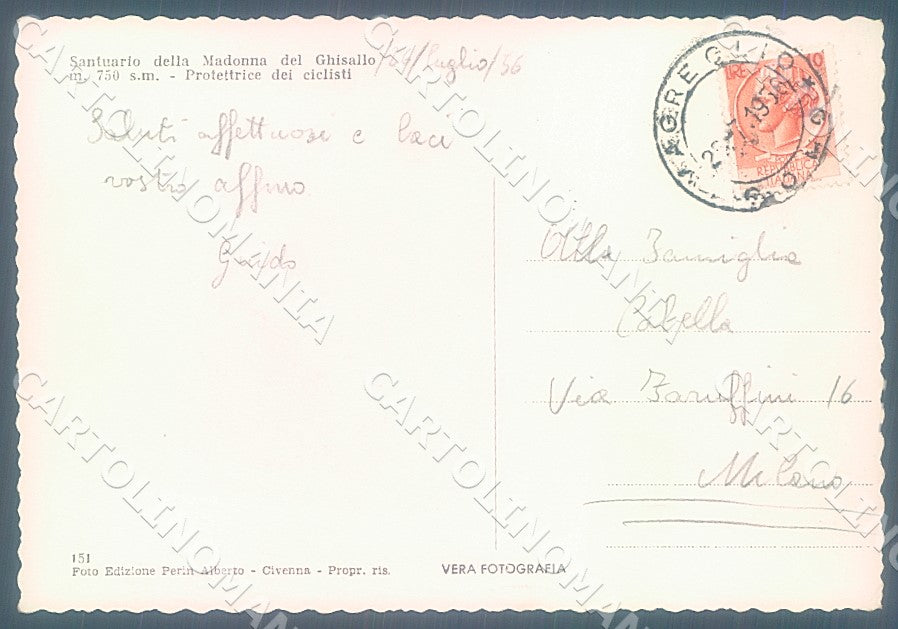 Santuario della Madonna del Ghisallo
m. 750 s.m. - Protettrice dei ciclisti
Luglio/56
Saluti affettuosi e baci
vostro affmo
Guido
MAGREGLIO * COMO
1956
LIRE 10
REPUBBLICA
ITALIANA
Alla Famiglia
Via Faruffini 16
Milano
151
Foto Edizione Perin Alberto - Civenna - Propr. ris.
VERA FOTOGRAFIA
CARTOLINOMANIA
CARTOLINOMANIA
CARTOLINOMANIA
CARTOLINOMANIA